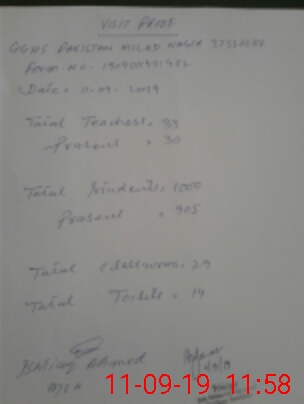 VISIT PROOF
GGHS PAKISTAN MILAD NAGAR
Form. No.
Date = 11-09-2019
Total Teachers = 33
Present = 30
Total Students = 1000
Present = 905
Total Classrooms = 29
Total Toilets = 14
Ahmed
MEA
11-09-19 11:58